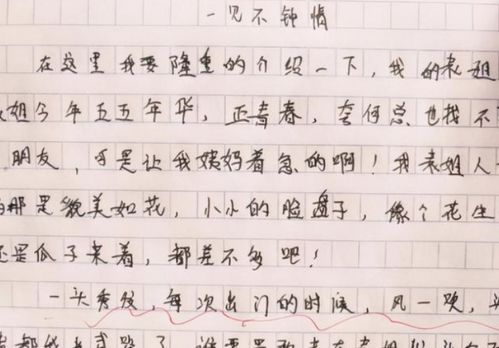 一见不钟情
在这里我要隆重的介绍一下，我的表姐
表姐今年五五年华，正青春，奈何总也找不
朋友，可是让我姨妈着急的啊！我表姐人
的那是貌美如花，小小的脸盘子，像个花生
还是瓜子来着，都差不多吧！
一头秀发，每次出门的时候，风一吹，